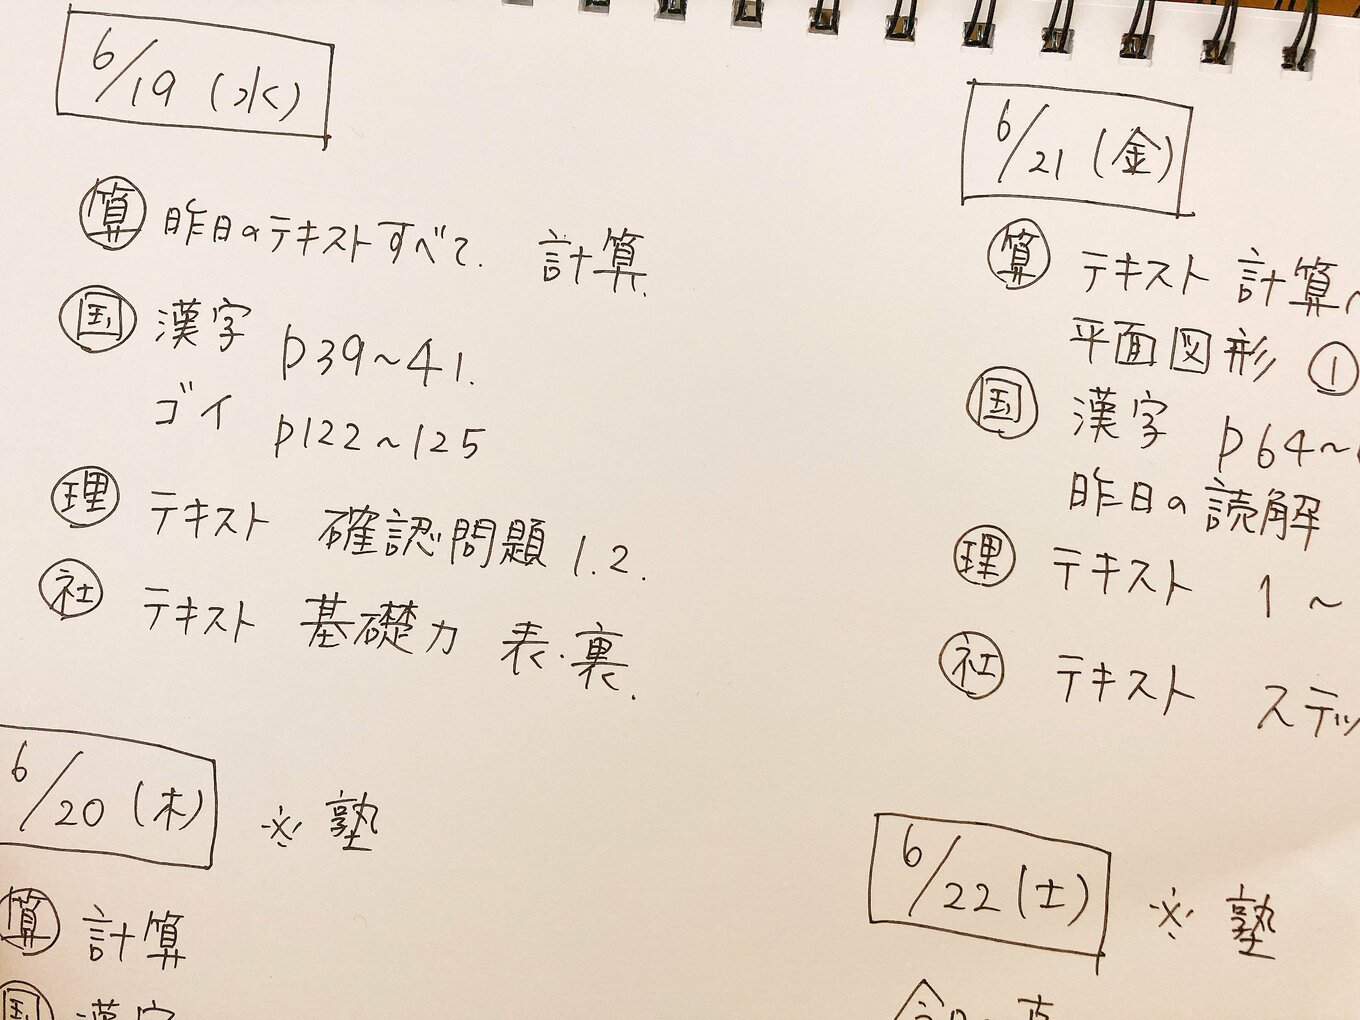 6/19(水)
算 昨日のテキストすべて. 計算.
国 漢字 p39~41.
ゴイ p122~125
理 テキスト 確認問題 1.2.
社 テキスト 基礎力 表・裏.
6/20(木) ※塾
算 計算
国 漢字
6/21(金)
算 テキスト 計算
平面図形 ①
国 漢字 p64~
昨日の読解
理 テキスト 1~
社 テキスト ステッ
6/22(土) ※塾